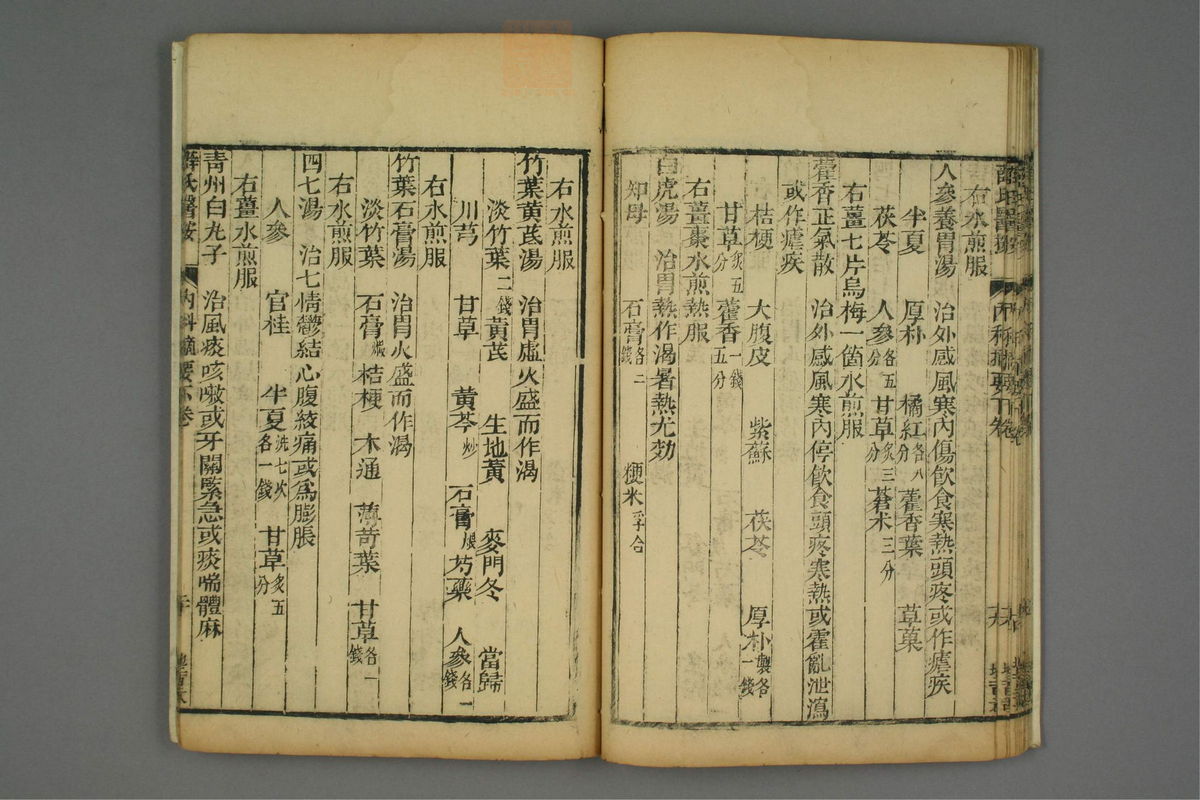 右水煎服
人參養胃湯 治外感風寒內傷飲食寒熱頭疼或作瘧疾
半夏 厚朴 橘紅各八分 藿香葉 草菓
茯苓 人參各五分 甘草炙三分 蒼朮三分
右薑七片烏梅一箇水煎服
藿香正氣散 治外感風寒內停飲食頭疼寒熱或霍亂泄瀉
或作瘧疾
桔梗 大腹皮 紫蘇 茯苓 厚朴製各一錢
甘草炙五分 藿香一錢五分
右薑棗水煎熱服
白虎湯 治胃熱作渴暑熱尤効
知母 石膏各二錢 粳米半合
右水煎服
竹葉黃芪湯 治胃虛火盛而作渴
淡竹葉二錢 黃芪 生地黃 麥門冬 當歸
川芎 甘草 黃芩炒 石膏煅 芍藥 人參各一錢
右水煎服
竹葉石膏湯 治胃火盛而作渴
淡竹葉 石膏煅 桔梗 木通 薄荷葉 甘草各一錢
右水煎服
四七湯 治七情鬱結心腹絞痛或爲膨脹
人參 官桂 半夏洗七次各一錢 甘草炙五分
右薑水煎服
青州白丸子 治風痰咳嗽或牙關緊急或痰喘體麻
薛氏醫案 內科摘要下卷